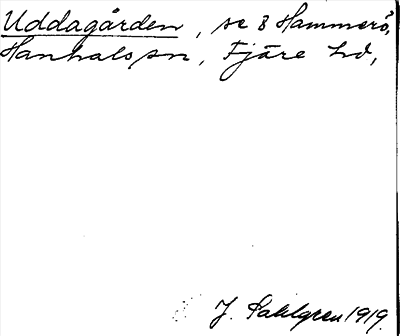 Uddagården, se 3 Hammerö,
Hanhals sn, Fjäre hd,
J. Sahlgren 1919.